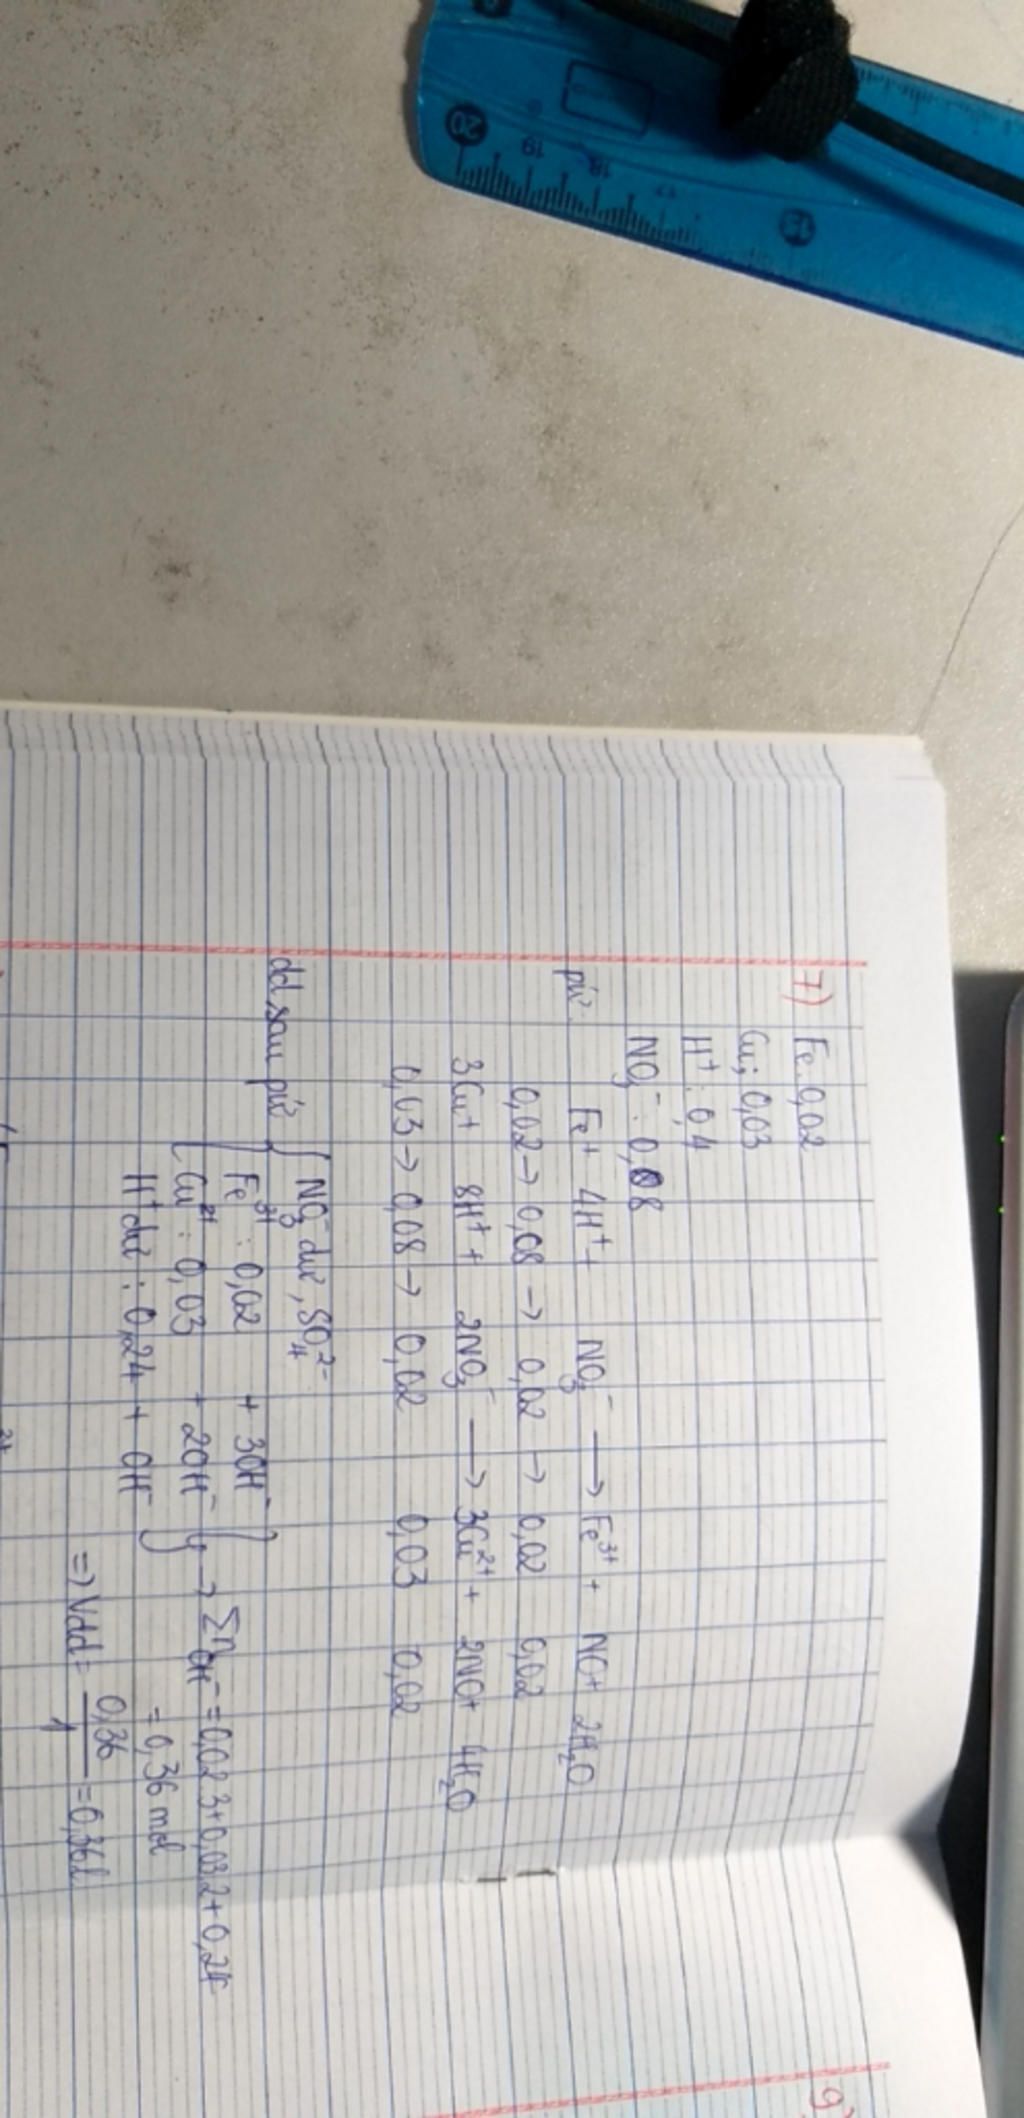 20 19 18 17 15
7) Fe: 0,02
Cu: 0,03
H⁺: 0,4
NO₃⁻: 0,08
pứ: Fe + 4H⁺ + NO₃⁻ → Fe³⁺ + NO + 2H₂O
0,02 → 0,08 → 0,02 → 0,02 0,02
3Cu + 8H⁺ + 2NO₃⁻ → 3Cu²⁺ + 2NO + 4H₂O
0,03 → 0,08 → 0,02 0,03 0,02
dd sau pứ { NO₃⁻ dư, SO₄²⁻
Fe³⁺: 0,02 + 3OH⁻
Cu²⁺: 0,03 + 2OH⁻ } → Σn OH⁻ = 0,02.3+0,03.2+0,24
H⁺ dư: 0,24 + OH⁻ = 0,36 mol
=> Vdd = 0,36/1 = 0,36l
9)